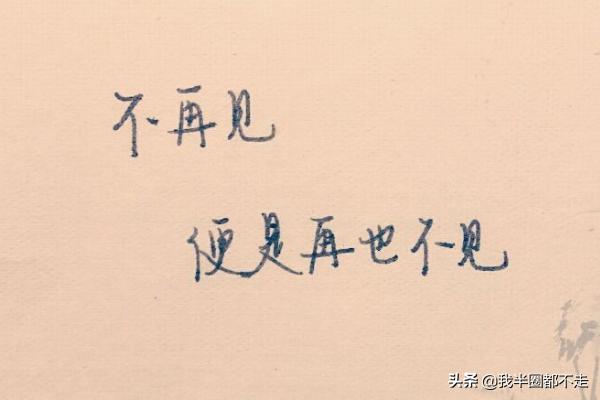 不再见
便是再也不见
头条 @我半圈都不走